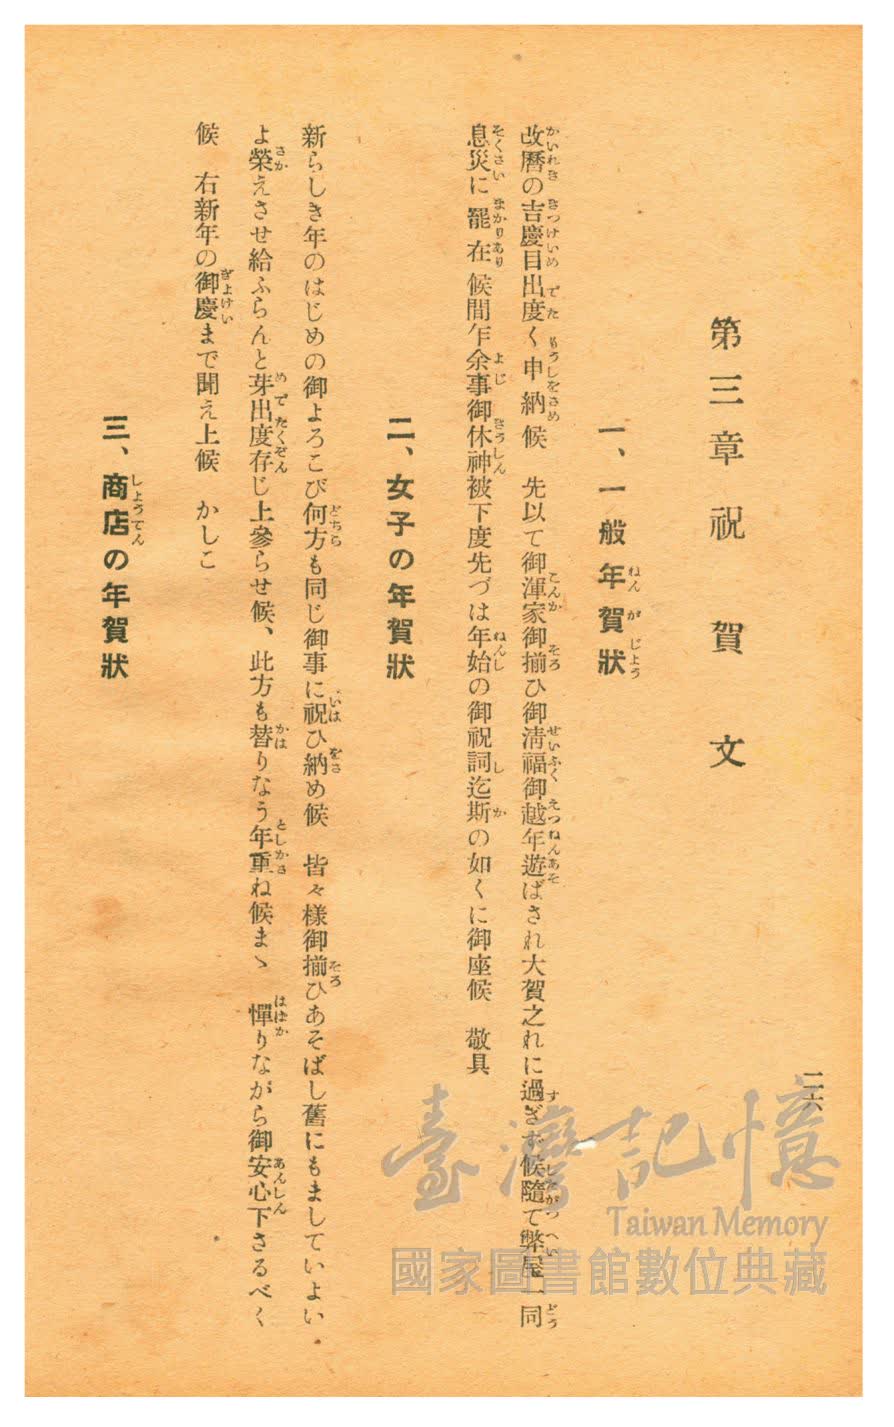 二六
第三章 祝賀文
一、一般年賀狀
改曆の吉慶目出度く申納候　先以て御渾家御揃ひ御淸福御越年遊ばされ大賀之れに過ぎず候隨て弊屋一同
息災に罷在候間乍余事御休神被下度先づは年始の御祝詞迄斯の如くに御座候　敬具
二、女子の年賀狀
新らしき年のはじめの御よろこび何方も同じ御事に祝ひ納め候　皆々樣御揃ひあそばし舊にもましていよい
よ榮えさせ給ふらんと芽出度存じ上參らせ候、此方も替りなう年重ね候まゝ　憚りながら御安心下さるべく
候　右新年の御慶まで聞え上候　かしこ
三、商店の年賀狀
臺灣記憶
Taiwan Memory
國家圖書館數位典藏